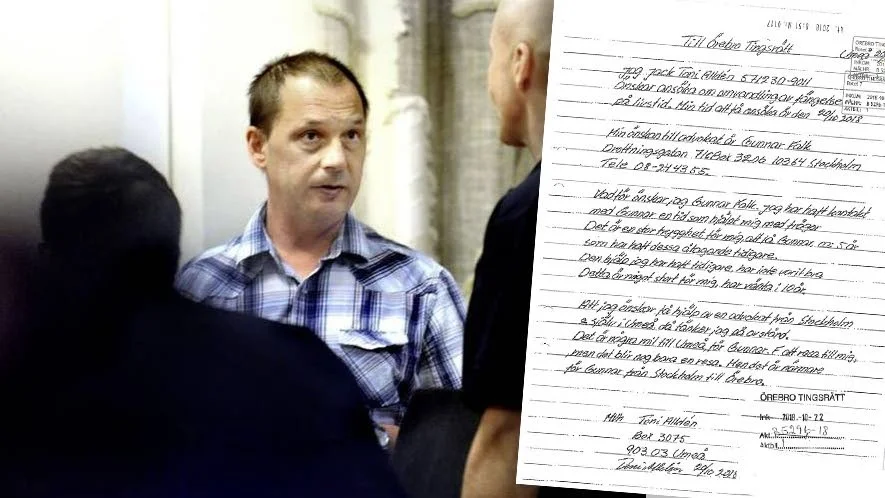 Till Örebro Tingsrätt
Umeå
Jag Jack Toni Aldén
Önskar ansöka om omvandling av fängelse
på livstid. Min tid att få ansöka är den 29/10 2018
Min önskan till advokat är Gunnar Falk
Drottningsgatan
Stockholm
Tele 08-
Vadför önskar, jag Gunnar Falk. Jag har haft kontakt
med Gunnar en tid som hjälpt mig med frågor
Det är en stor trygghet för mig, att få Gunnar
som har haft dessa åtagande tidigare.
Den hjälp jag har haft tidigare, har inte varit bra
Detta är något stort för mig, har väntat i 10 år.
Att jag önskar få hjälp av en advokat från Stockholm
själv i Umeå, då tänker, jag på avstånd.
Det är några mil till Umeå, för Gunnar. F att resa till mig,
men det blir nog bara en resa. Men det är närmare
för Gunnar från Stockholm till Örebro.
ÖREBRO TINGSRÄTT
Ink. 2018-10-22
Mvh Toni Aldén
Box 3075
903 03 Umeå
Toni Aldén 29/10 2018